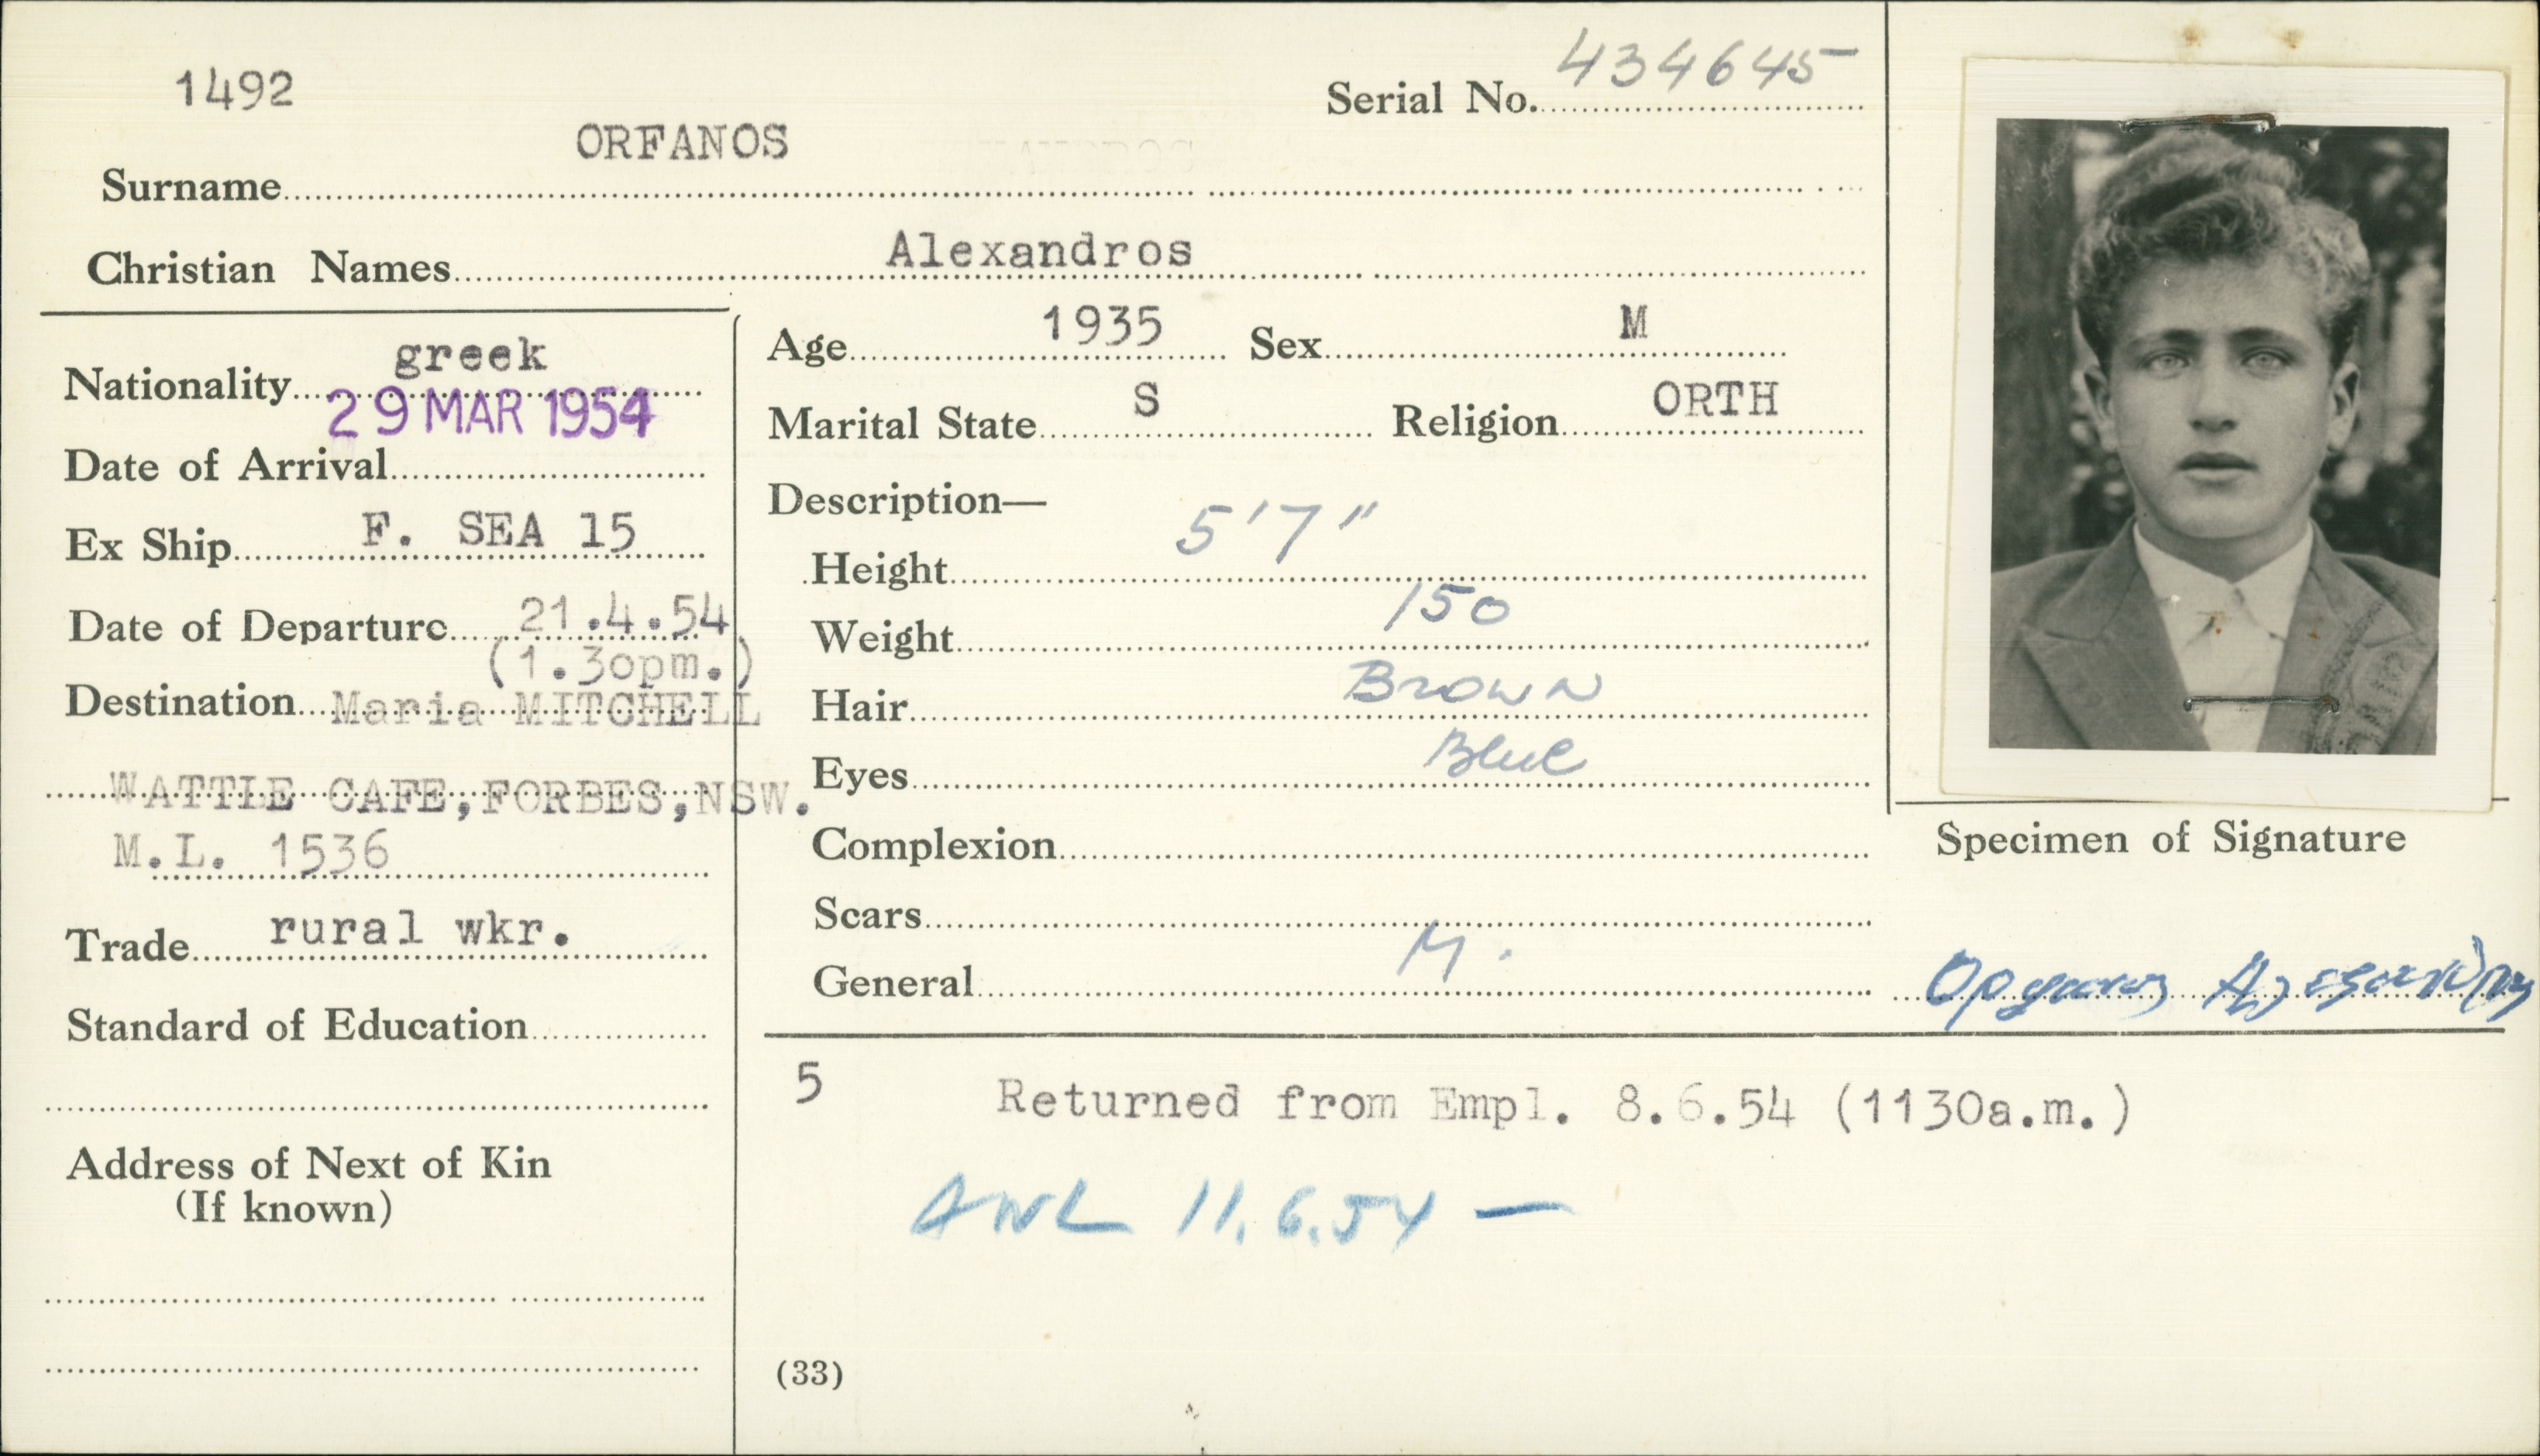 1492
Serial No. 434645
ORFANOS
Surname
Christian Names Alexandros
Nationality greek
29 MAR 1954
Date of Arrival
Ex Ship F. SEA 15
Date of Departure 21.4.54
(1.30pm.)
Destination Maria MITCHELL
WATTLE CAFE, FORBES, NSW.
M.L. 1536
Trade rural wkr.
Standard of Education
Address of Next of Kin
(If known)
Age 1935 Sex M
Marital State S Religion ORTH
Description—
Height 5'7"
Weight 150
Hair Brown
Eyes Blue
Complexion
Scars
General M.
Specimen of Signature
Ορφανος Αλεξανδρος
5 Returned from Empl. 8.6.54 (1130a.m.)
AWL 11.6.54 —
(33)